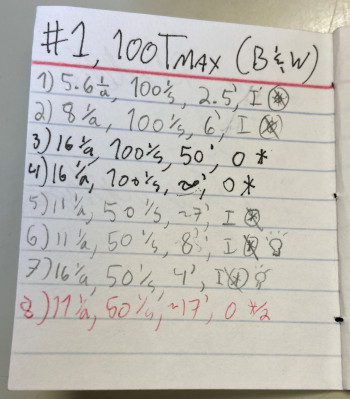 #1, 100TMAX (B&W)
1) 5.6 1/a, 100 1/s, 2.5', I
2) 8 1/a, 100 1/s, 6', I
3) 16 1/a, 100 1/s, 50', O *
4) 16 1/a, 100 1/s, ∞', O *
5) 11 1/a, 50 1/s, ~7', I
6) 11 1/a, 50 1/s, 8', I
7) 16 1/a, 50 1/s, 4', I
8) 11 1/a, 50 1/s, ~17', O */2